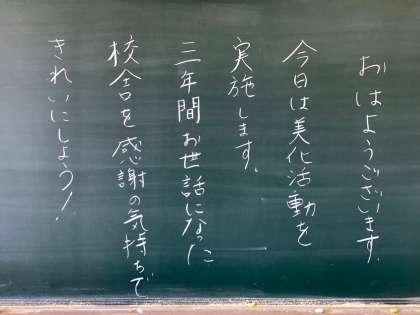 おはようございます.
今日は美化活動を
実施します.
三年間お世話になった
校舎を感謝の気持ちで
きれいにしよう!